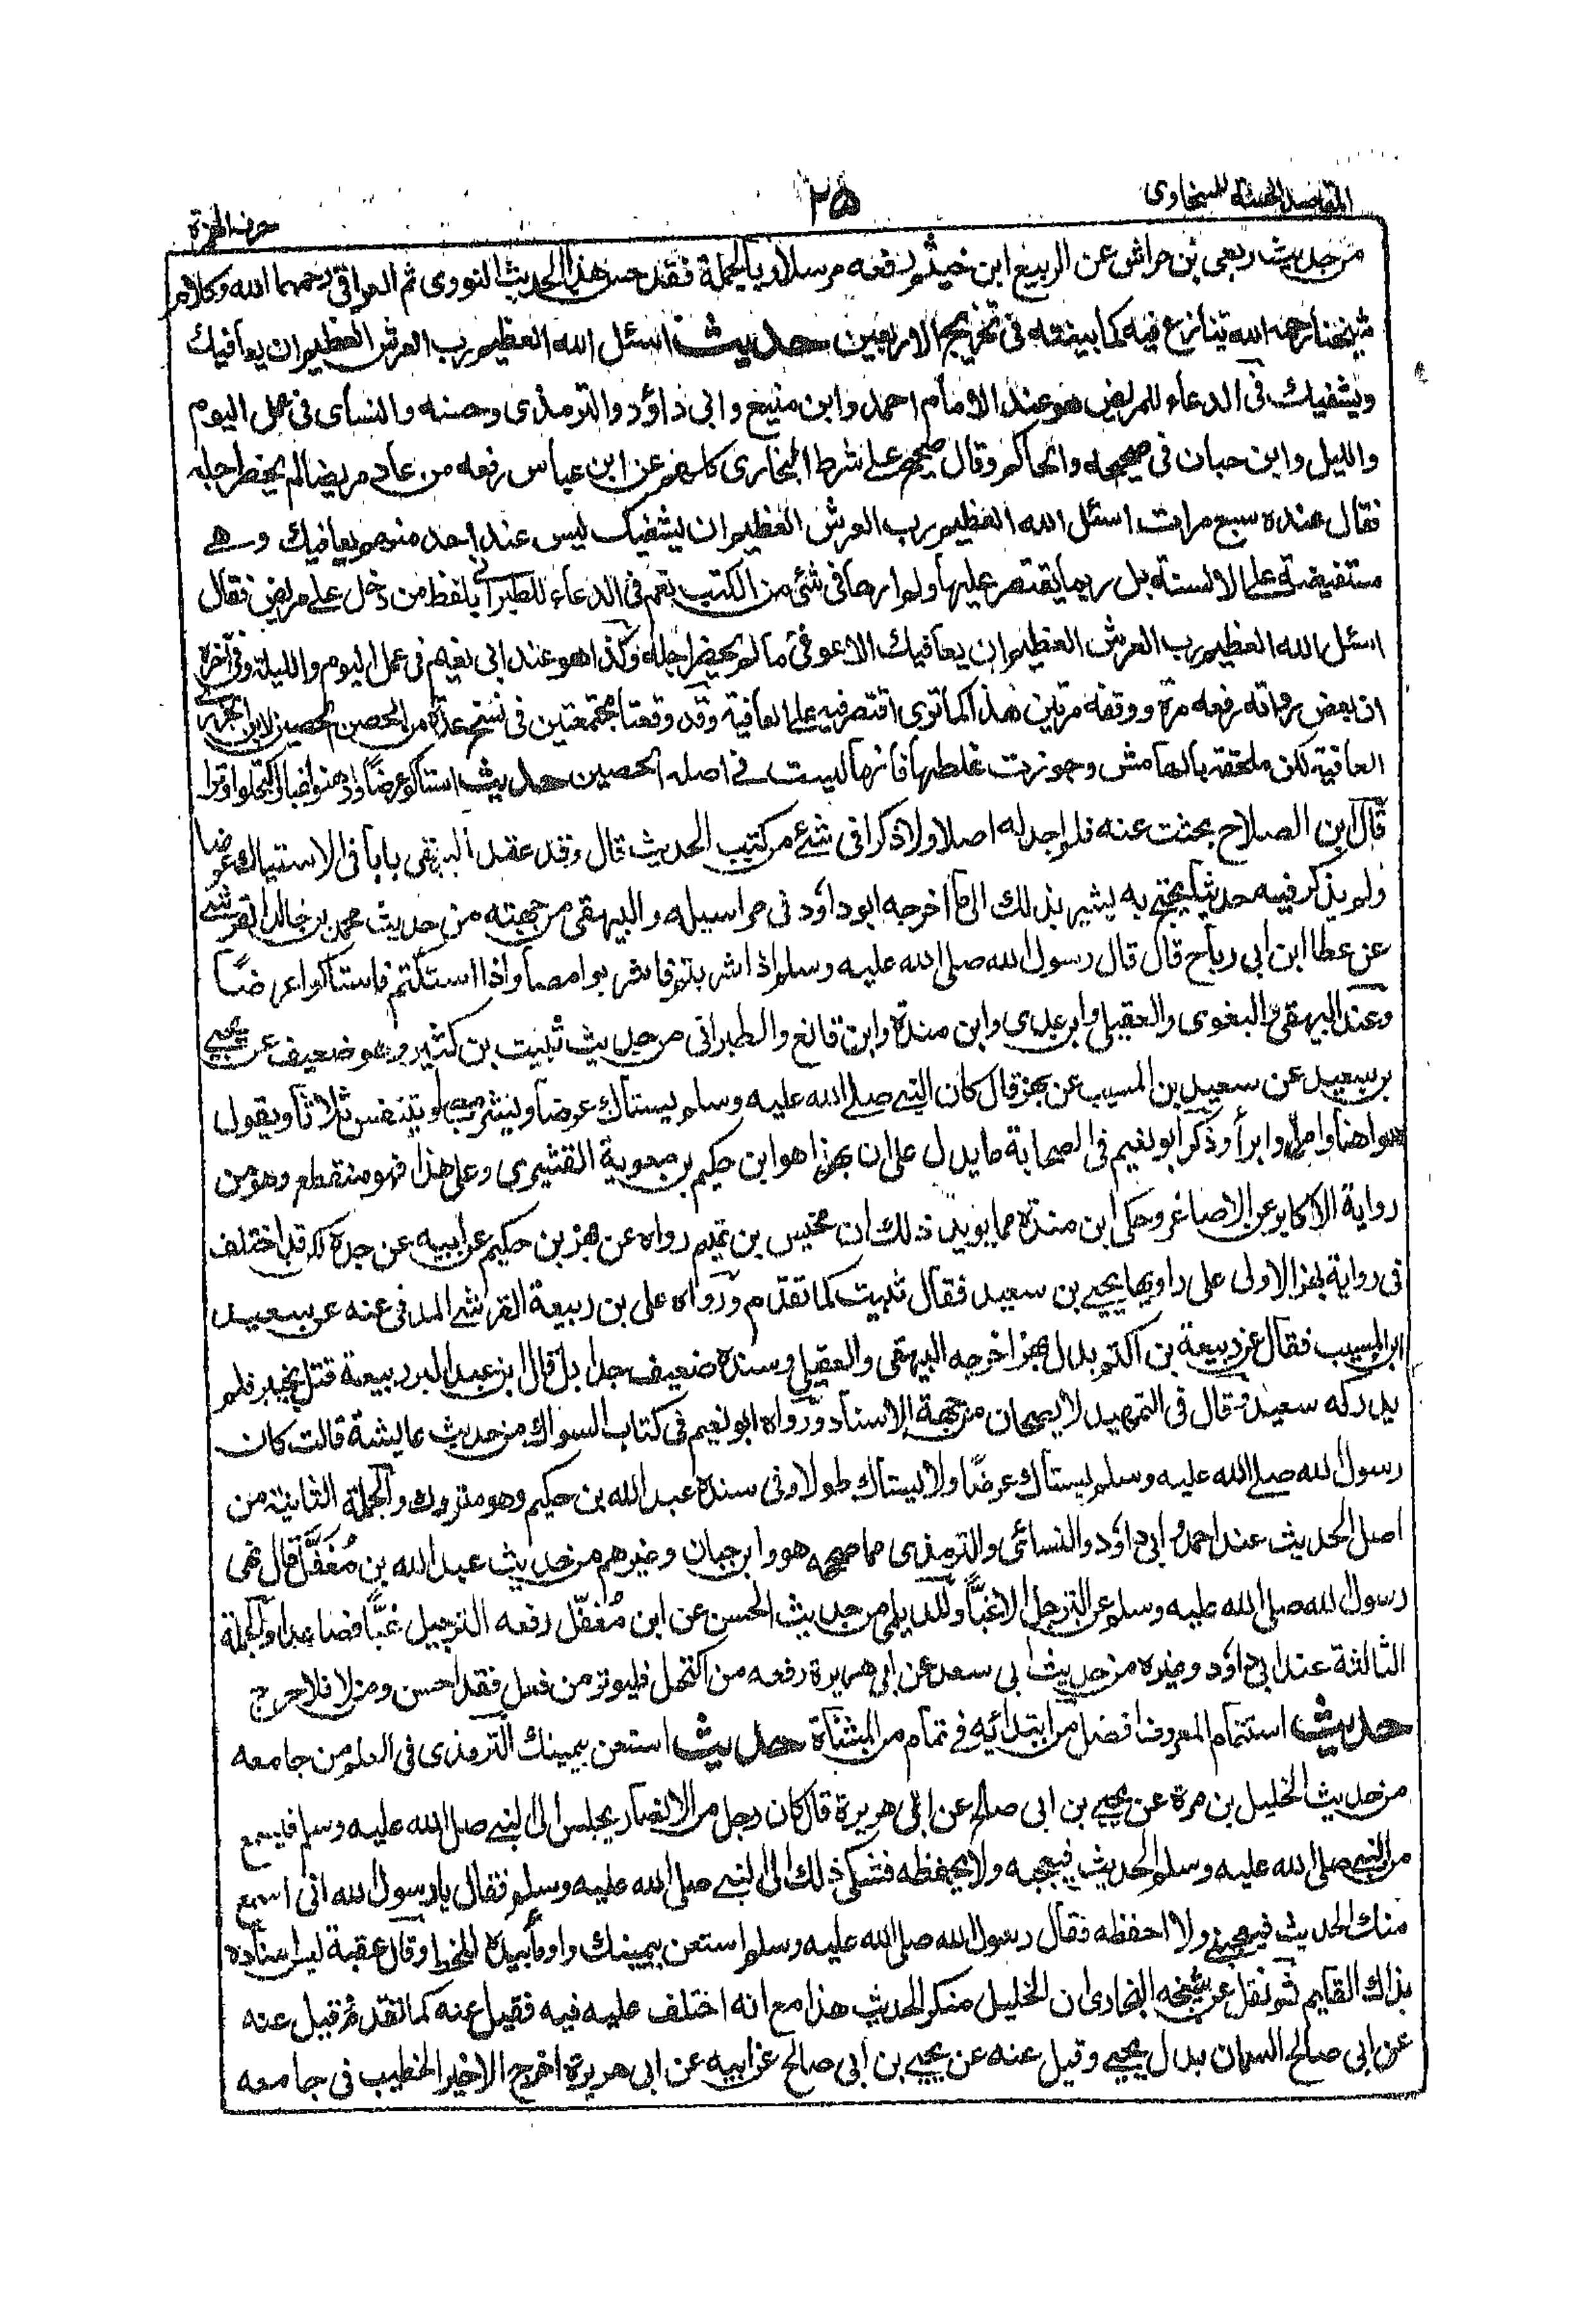 المقاصد الحسنة للسخاوى
٢٥
حرف الهمزة
من حديث ربعى بن حراش عن الربيع ابن خيثم رفعه مرسلا وبالجملة فقد حسن هذا الحديث النووى ثم العراقى رحمهما الله وكلام
شيخنا رحمه الله تنازع فيه كما بينته فى تخريج الاربعين حديث اسئل الله العظيم رب العرش العظيم ان يعافيك
ويشفيك فى الدعاء للمريض هو عند الامام احمد وابن منيع وابى داؤد والترمذى وحسنه والنسأى فى عمل اليوم
والليل وابن حبان فى صحيحه والحاكم وقال صحيح على شرط البخارى كلهم عن ابن عباس رفعه من عاد مريضا لم يحضر اجله
فقال عنده سبع مرات اسئل الله العظيم رب العرش العظيم ان يشفيك ليس عند احد منهم يعافيك وهى
مستفيضة على الالسنة بل ربما يقتصر عليها ولم ارها فى شئ من الكتب نعم فى الدعاء للطبرانى بلفظ من دخل على مريض فقال
اسئل الله العظيم رب العرش العظيم ان يعافيك الا عوفى ما لم يحضر اجله وكذا هو عند ابى نعيم فى عمل اليوم والليلة وفى آخره
ان بعض رواته رفعه مرة ووقفه مرتين هذا كما ترى اقتصر فيه على العافية وقد وقعتا مجتمعتين فى نسخ عدة من الحصن الحصين لابن الجزرى
العافية لكن ملحقة بالهامش وجوزت غلطها فانها ليست فى اصله الحصين حديث استاكوا عرضا وادهنوا غبا واكتحلوا وترا
قال ابن الصلاح بحثت عنه فلم اجد له اصلا ولا ذكرا فى شئ من كتب الحديث قال وقد عقد البيهقى بابا فى الاستياك عرضا
ولم يذكر فيه حديثا يحتج به يشير بذلك الى ما اخرجه ابو داؤد فى مراسيله والبيهقى من جهته من حديث محمد بن خالد القرشى
عن عطا ابن ابى رباح قال قال رسول الله صلى الله عليه وسلم اذا شربتم فاشربوا مصا واذا استكتم فاستاكوا عرضًا
وعند البيهقى والبغوى والعقيلى وابن عدى وابن مندة وابن قانع والطبرانى من حديث ثبيت بن كثير وهو ضعيف عن يحيى
بن سعيد عن سعيد بن المسيب عن بهز قال كان النبى صلى الله عليه وسلم يستاك عرضا ويشرب مصا ويتنفس ثلاثا ويقول
هو اهنأ وامرأ وابرأ وذكر ابو نعيم فى الصحابة ما يدل على ان بهزا هو ابن حكيم بن معوية القشيرى وعلى هذا فهو منقطع وهو من
رواية الاكابر عن الاصاغر وحكى ابن مندة مما يويد ذلك ان مخيس بن تميم رواه عن بهز بن حكيم عن ابيه عن جده لكن قد اختلف
فى رواية بهز الاولى على راويها يحيى بن سعيد فقال ثبيت كما تقدم ورواه على بن ربيعة القرشى المدنى عنه عن سعيد
ابن المسيب فقال عن ربيعة بن اكتم بدل بهز اخرجه البيهقى والعقيلى وسنده ضعيف جدا بل قال ابن عبد البر ربيعة قتل بخيبر فلم
يدركه سعيد وقال فى التمهيد لا يصحان من جهة الاسناد ورواه ابو نعيم فى كتاب السواك من حديث عايشة قالت كان
رسول الله صلى الله عليه وسلم يستاك عرضًا ولا يستاك طولا وفى سنده عبد الله بن حكيم وهو متروك والجملة الثانية من
اصل الحديث عند احمد وابى داؤد والنسائى والترمذى مما صححه هو وابن حبان وغيرهم من حديث عبد الله بن مُغَفَّل قال نهى
رسول الله صلى الله عليه وسلم عن الترجل الا غبًّا وللديلمى من حديث الحسن عن ابن مُغَفّل رفعه الترجيل غبًّا فصاعدا والجملة
الثالثة عند ابى داؤد وغيره من حديث ابى سعد عن ابى هريرة رفعه من اكتحل فليوتر من فعل فقد احسن ومن لا فلا حرج
حديث استتمام المعروف افضل من ابتدائيه فى تمام من المثناة حديث استعن بيمينك الترمذى فى العلم من جامعه
من حديث الخليل بن مرة عن يحيى بن ابى صالح عن ابى هريرة قال كان رجل من الانصار يجلس الى النبى صلى الله عليه وسلم فيسمع
من النبى صلى الله عليه وسلم الحديث فيعجبه ولا يحفظه فشكى ذلك الى النبى صلى الله عليه وسلم فقال يا رسول الله انى اسمع
منك الحديث فيعجبنى ولا احفظه فقال رسول الله صلى الله عليه وسلم استعن بيمينك واومأ بيده للخط وقال عقبة ليس اسناده
بذاك القايم ثم نقل عن شيخه البخارى ان الخليل منكر الحديث هذا مع انه اختلف عليه فيه فقيل عنه كما تقدم وقيل عنه
عن ابى صالح السمان بدل يحيى وقيل عنه عن يحيى بن ابى صالح عن ابيه عن ابى هريرة اخرج الاخير الخطيب فى جامعه